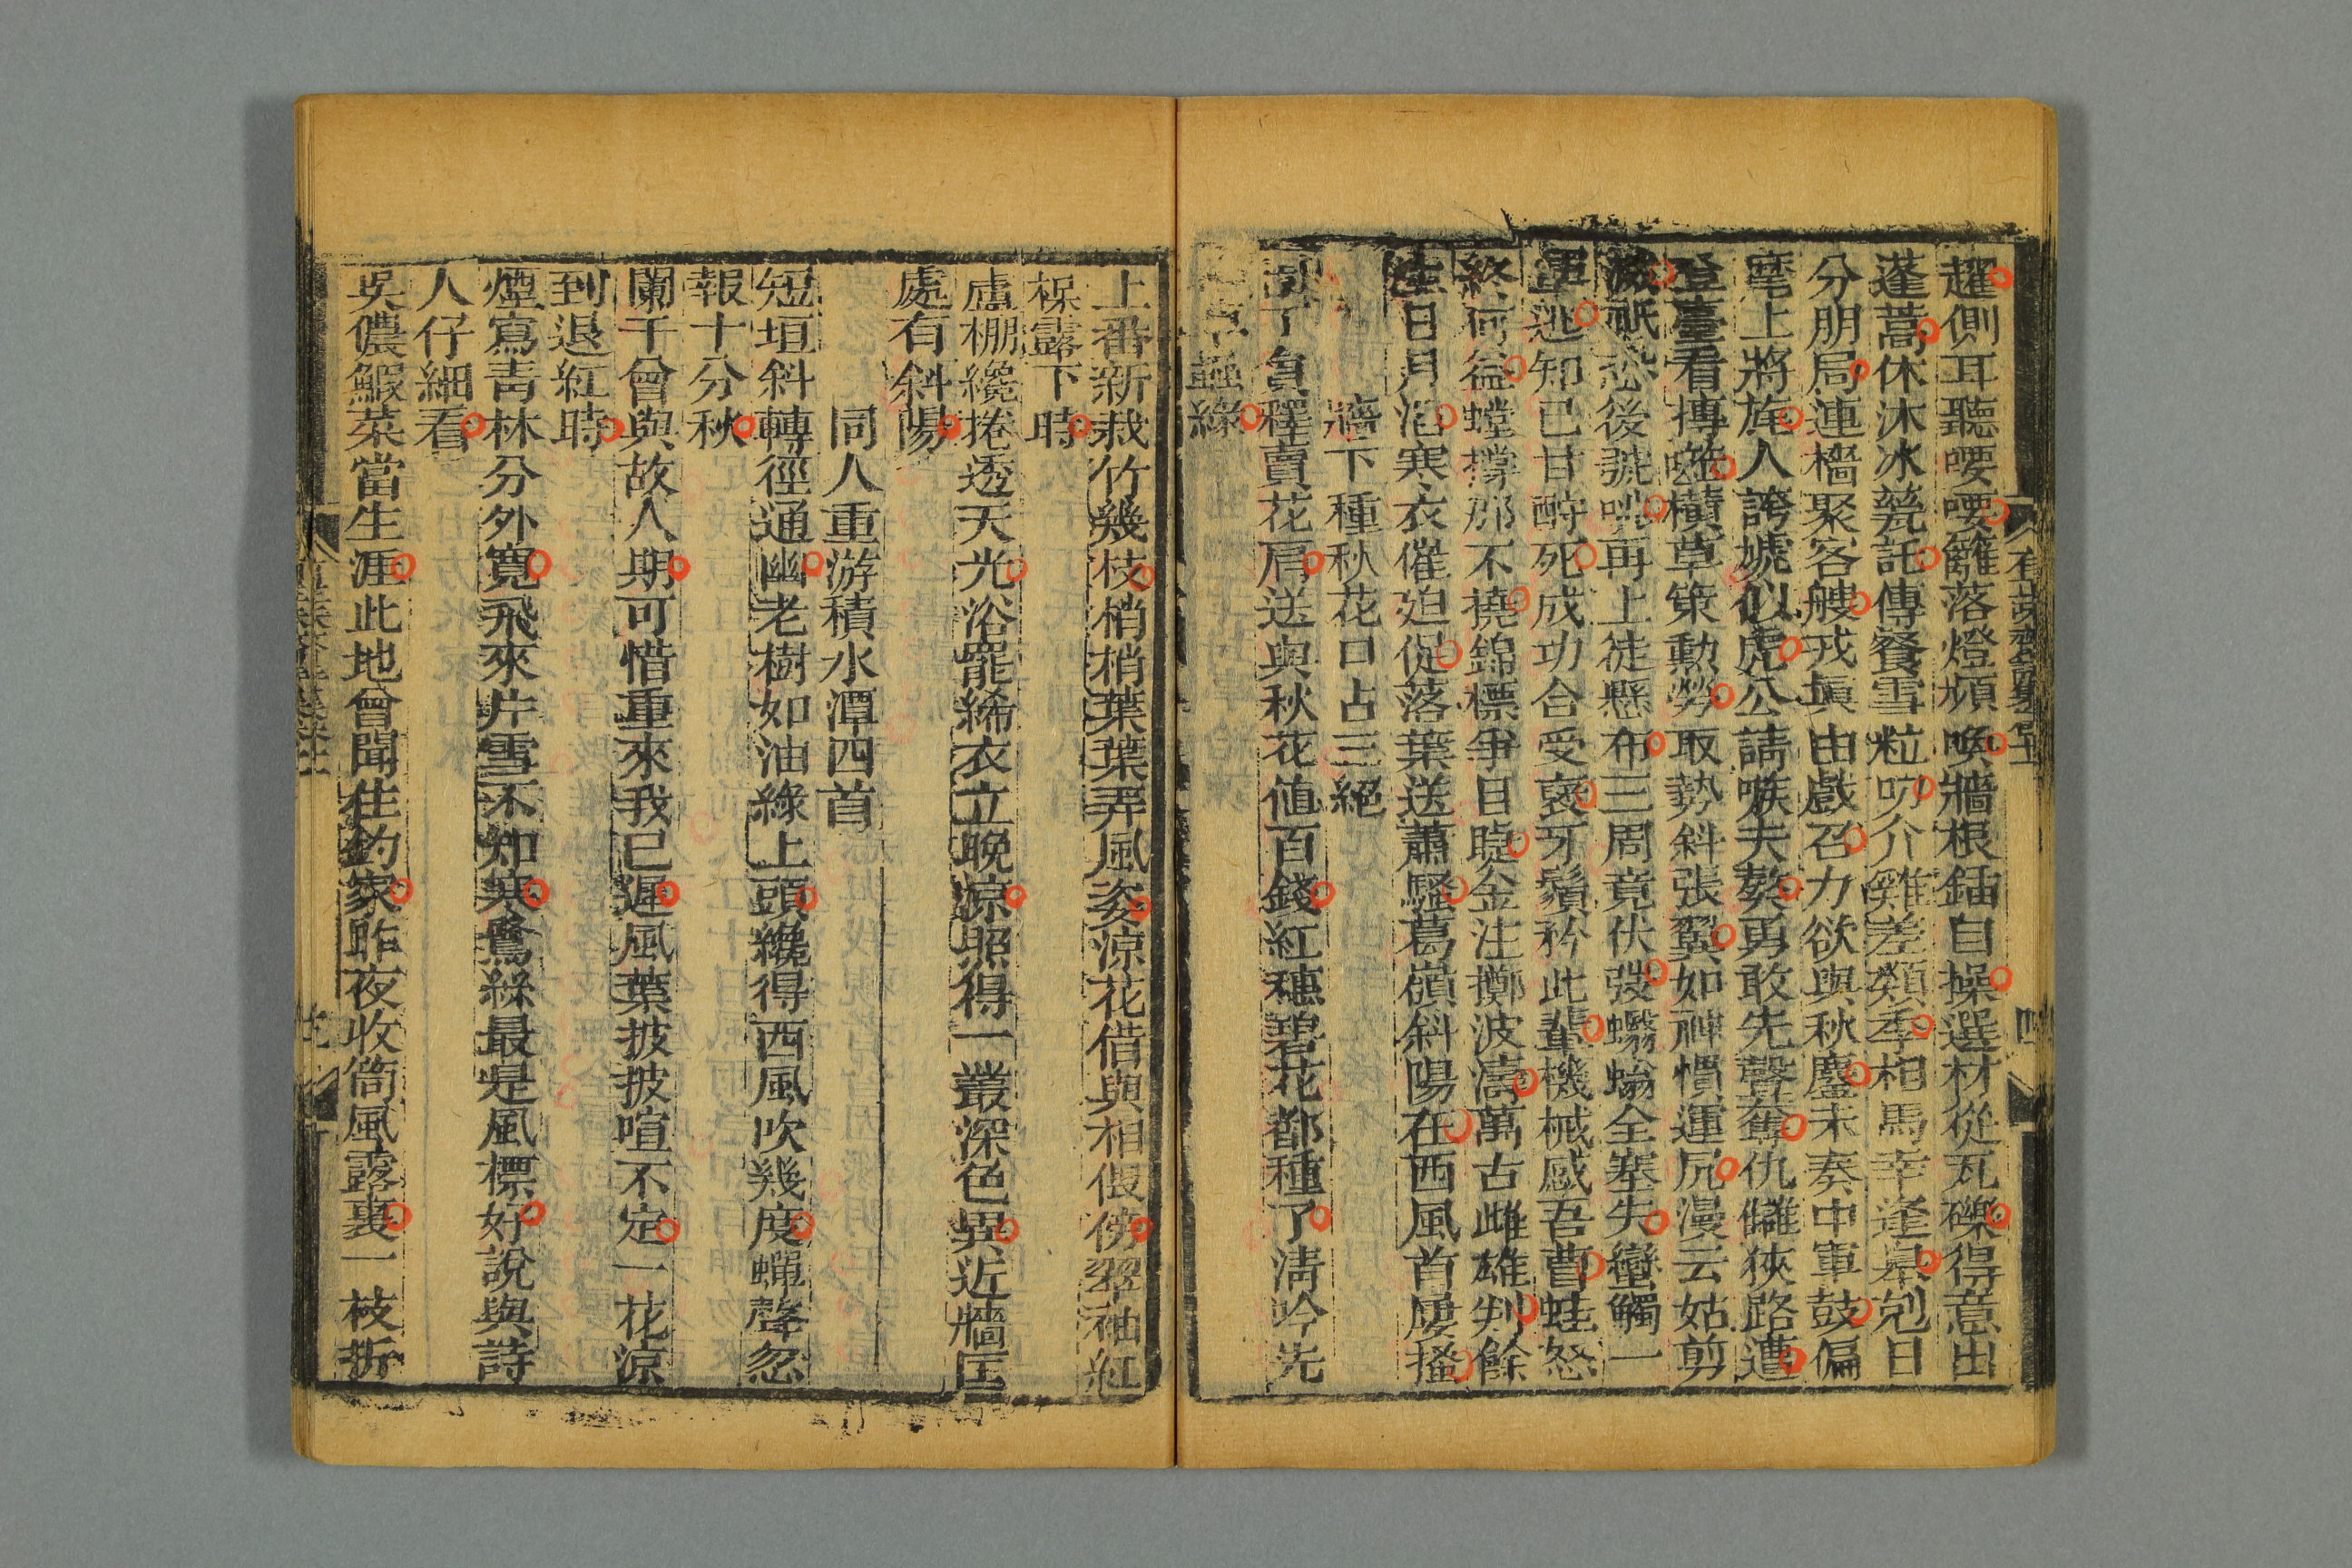 趯側耳聽喓喓籬落燈頻喚牆根鍤自操選材從瓦礫得意出
蓬蒿休沐冰甆託傳餐雪粒叨介雞差類季相馬幸逢皋剋日
分朋局連檣聚客艘戎真由戲召力欲與秋鏖未奏中軍鼓偏
麾上將旄人誇虓似虎公請嗾夫獒勇敢先聲奪仇讎狹路遭
登臺看摶橫草策勳勞取勢斜張翼如神慣運尻漫云姑剪
滅祇恐後號咷再上徒懸布三周竟伏弢螉全塞失蠻觸一
軍逃知已甘酹死成功合受褒牙鬚矜此輩機械感吾曹蛙怒
終何益螳撐那不撓錦標爭目睫金注擲波濤萬古雌雄判餘
生日月滔寒衣催迫促落葉送蕭騷葛嶺斜陽在西風首屢搔
牆下種秋花口占三絕
了負釋賣花肩送與秋花值百錢紅穗碧花都種了淸吟先
綠
上番新栽竹幾枝梢梢葉葉弄風姿涼花借與相偎傍翠袖紅
裸露下時
廬棚纔捲透天光浴罷絺衣立晚涼照得一叢深色異近牆匡
處有斜陽
同人重游積水潭四首
短垣斜轉徑通幽老樹如油綠上頭纔得西風吹幾度蟬聲忽
報十分秋
闌干曾與故人期可惜重來我已遲風葉披披喧不定一花涼
到退紅時
煙寫靑林分外寬飛來片雪不知寒鷺絲最是風標好說與詩
人仔細看
吳儂鰕菜當生涯此地曾聞住釣家昨夜收筒風露裏一枝折